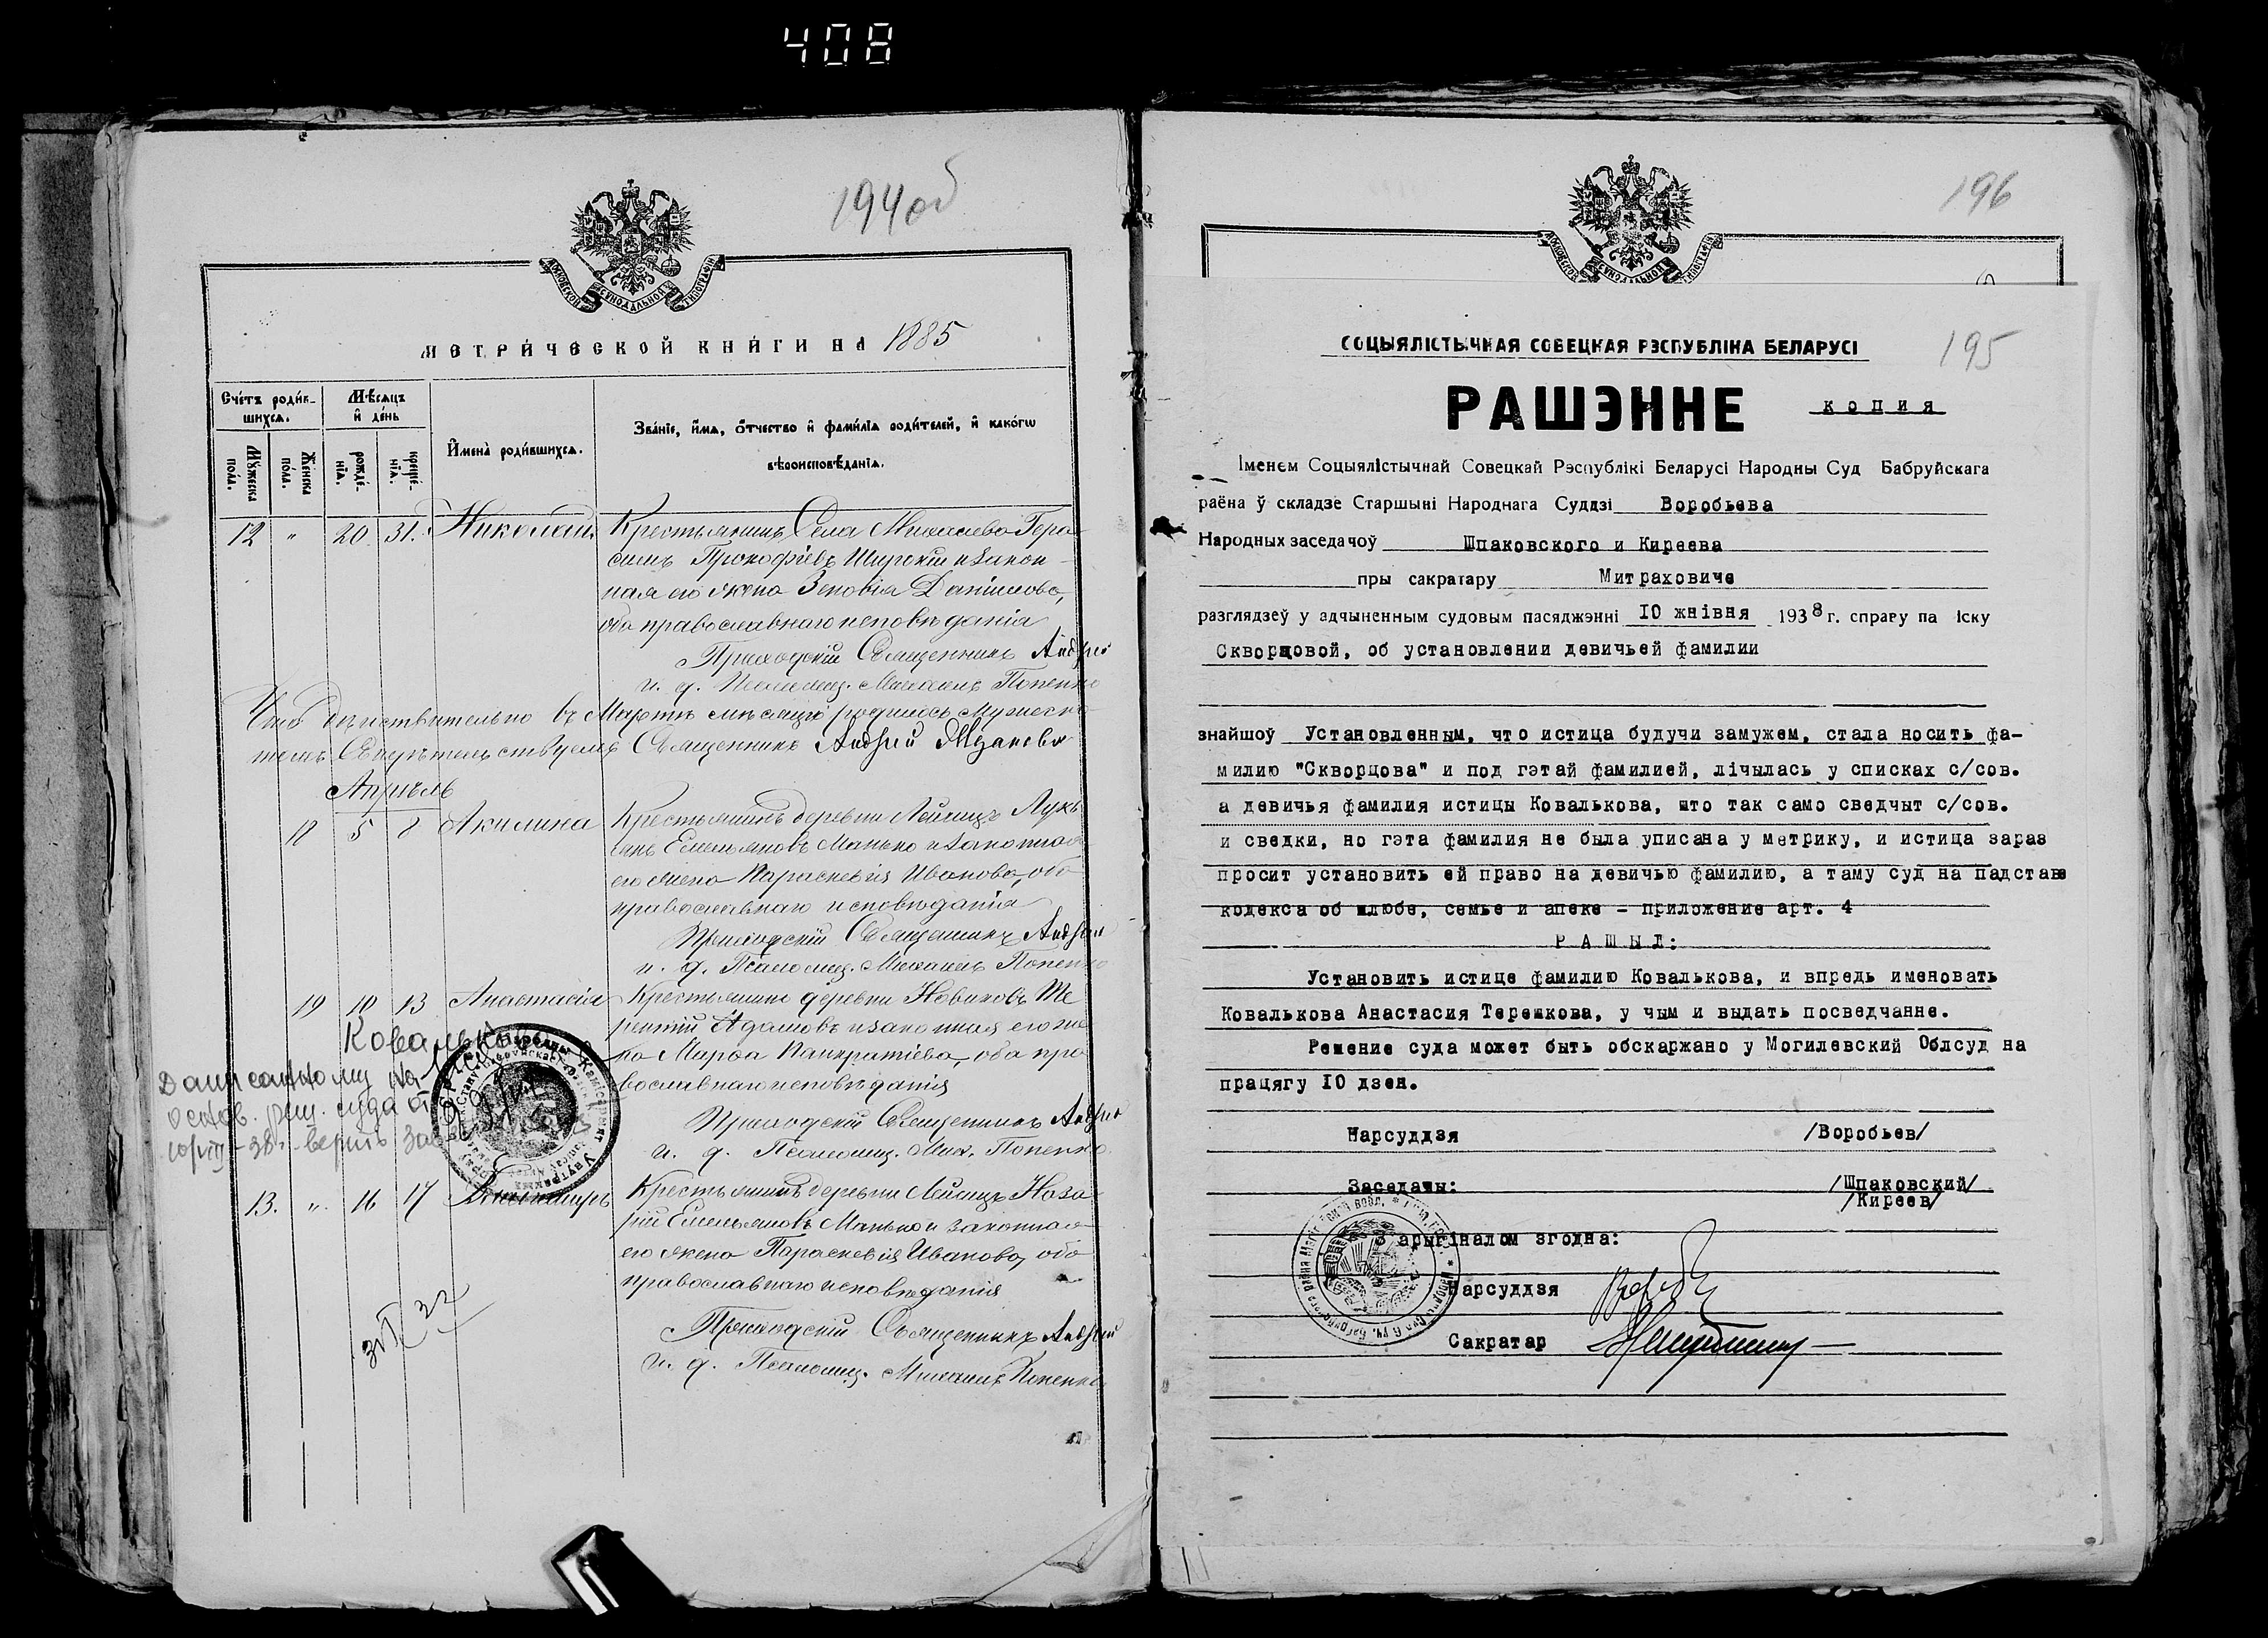 408
194об
МОСКОВСКОЙ СѴНОДАЛЬНОЙ ТИПОГРАФІИ
МЕТРИ́ЧЕСКОЙ КНИ́ГИ НА 1885
Сче́тъ роди́в-
шихся.
Мѣ́сяцъ
и҆ де́нь
И҆мена̀ роди́вшихся.
Зва́нїе, и҆́мя, ѻ҆́тчество и҆ фами́лїя роди́телей, и҆ како́гѡ
вѣроисповѣ́данїя.
Мꙋ́жеска
по́ла.
Же́нска
по́ла.
рожде́-
нїя.
креще́-
нїя.
12 " 20 31. Николай Крестьянинъ Села Михалева Гера
симъ Прокофіевъ Широкій и закон
ная его жена Зеновія Даніилова,
оба православнаго исповѣданія
Приходскій Священникъ Андрей
и. д. Псаломщ. Михаилъ Попенко
Что дѣйствительно въ Мартѣ мѣсяцѣ родилось
Свидѣтельствуемъ Священникъ Андрей
Апрѣль
18 5 8 Акилина Крестьянинъ деревни Лейчицъ Лукь
янъ Емельяновъ Манько и законная
его жена Параскевія Иванова, оба
православнаго исповѣданія
Приходскій Священникъ Андрей
и. д. Псаломщ. Михаилъ Попенко
19 10 13 Анастасія Крестьянинъ деревни Новиковъ Те
рентій Адамовъ и законная его же
на Марѳа Панкратіева, оба пра
вославнаго исповѣданія
Ковалькова
Дописанному на
основ. реш. суда от
10/VIII-38г. верить
Приходскій Священникъ Андрей
и. д. Псаломщ. Мих. Попенко
13. " 16 17 Александръ Крестьянинъ деревни Лейчицъ Наза
рій Емельяновъ Манько и законная
его жена Параскевія Иванова, оба
православнаго исповѣданія
Приходскій Священникъ Андрей
и. д. Псаломщ. Михаилъ Попенко
196
МОСКОВСКОЙ СѴНОДАЛЬНОЙ ТИПОГРАФІИ
195
СОЦЫЯЛІСТЫЧНАЯ СОВЕЦКАЯ РЭСПУБЛІКА БЕЛАРУСІ
РАШЭННЕ копия
Іменем Соцыялістычнай Совецкай Рэспублікі Беларусі Народны Суд Бабруйскага
раёна ў складзе Старшыні Народнага Суддзі Воробьева
Народных заседачоў Шпаковского и Киреева
пры сакратару Митраховиче
разглядзеў у адчыненным судовым пасяджэнні 10 жнівня 1938 г. справу па іску
Скворцовой, об установлении девичьей фамилии
знайшоў Установленным, что истица будучи замужем, стала носить фа-
милию "Скворцова" и под гэтай фамилией, лічылась у списках с/сов.
а девичья фамилия истицы Ковалькова, што так само сведчыт с/сов.
и сведки, но гэта фамилия не была уписана у метрику, и истица зараз
просит установить ей право на девичью фамилию, а таму суд на падставе
кодекса об шлюбе, семье и апеке - приложение арт. 4
Р А Ш Ы Л:
Установить истице фамилию Ковалькова, и впредь именовать
Ковалькова Анастасия Терешкова, у чым и выдать посведчанне.
Решение суда может быть обскаржано у Могилевский Облсуд на
працягу 10 дзен.
Нарсуддзя /Воробьев/
Заседачы: /Шпаковский/
/Киреев/
З арыгіналом згодна:
Нарсуддзя
Сакратар